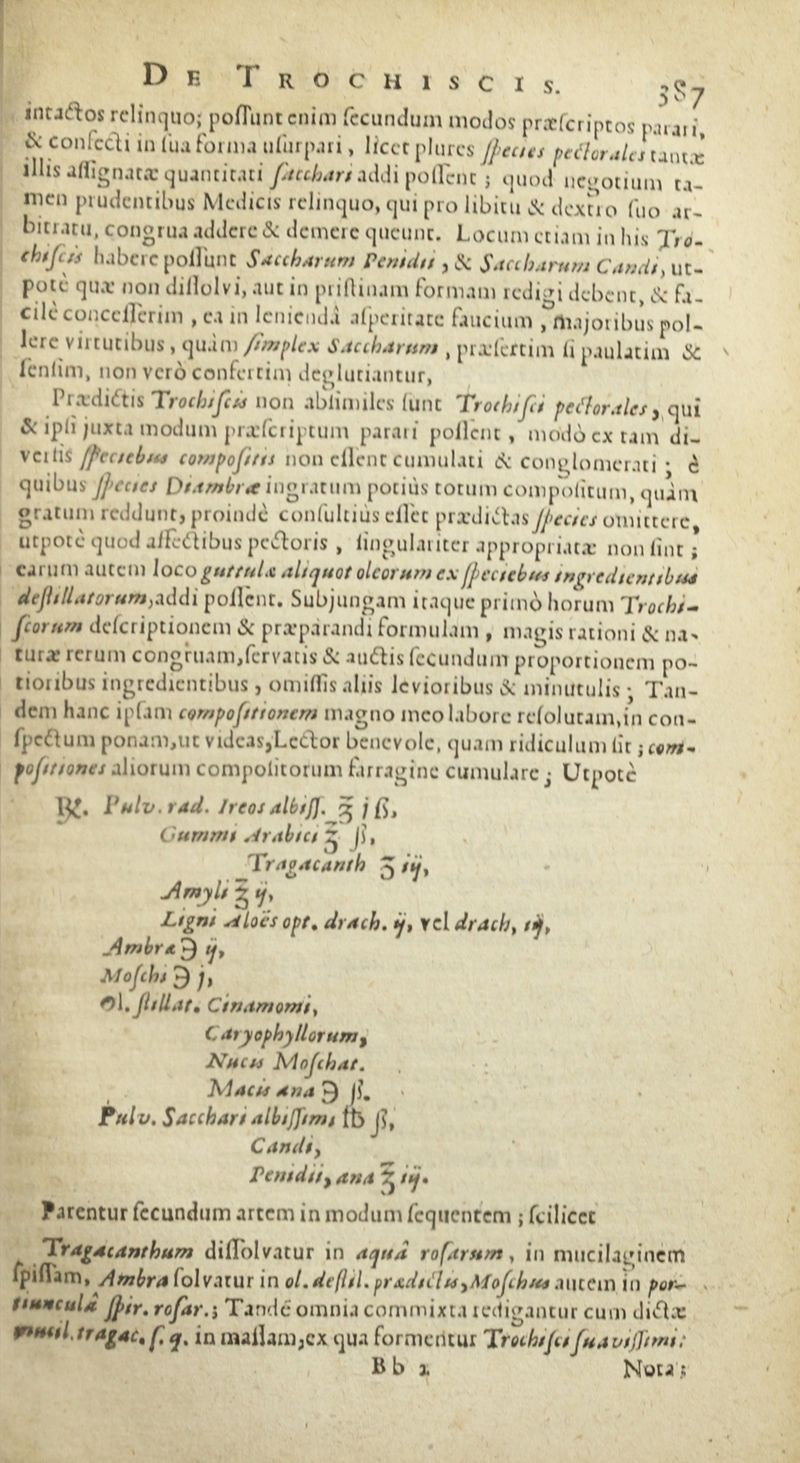 DE TROCHISCIS. 387
intactos relinquo; possunt enim secundum modos præscriptos parari,
& confecti in sua forma usurpari, licet plures species pectorales tantæ
illis assignatæ quantitati sacchari addi possent; quod negotium ta-
men prudentibus Medicis relinquo, qui pro libitu & dextro suo ar-
bitratu, congrua addere & demere queunt. Locum etiam in his Tro-
chiscis habere possunt Saccharum Penidii, & Saccharum Candi, ut-
potè quæ non dissolvi, aut in pristinam formam redigi debent, & fa-
cilè concesserim, ea in leniendâ asperitate faucium, majoribus pol-
lere virtutibus, quàm simplex Saccharum, præsertim si paulatim &
sensim, non verò confertim deglutiantur,
Prædictis Trochiscis non absimiles sunt Trochisci pectorales, qui
& ipsi juxta modum præscriptum parari possent, modò ex tam di-
versis speciebus compositis non essent cumulati & conglomerati; è
quibus species Diambræ ingratum potiùs totum compositum, quàm
gratum reddunt, proindè consultius esset prædictas species omittere,
utpotè quod affectibus pectoris, singulariter appropriatæ non sint;
earum autem loco guttulæ aliquot oleorum ex speciebus ingredientibus
destillatorum, addi possent. Subjungam itaque primò horum Trochi-
scorum descriptionem & præparandi formulam, magis rationi & na-
turæ rerum congruam, servatis & auctis secundum proportionem po-
tioribus ingredientibus, omissis aliis levioribus & minutulis; Tan-
dem hanc ipsam compositionem magno meo labore resolutam, in con-
spectum ponam, ut videas, Lector benevole, quam ridiculum sit; com-
positiones aliorum compositorum farragine cumulare; Utpotè
℞. Pulv. rad. Ireos albiss. ℥ j ß,
Gummi Arabici ℥ ß,
Tragacanth ʒ iij,
Amyli ℥ ij,
Ligni Aloës opt. drach. ij, vel drach, iij,
Ambræ ℈ ij,
Moschi ℈ j,
Ol. stillat. Cinamomi,
Caryophyllorum,
Nucis Moschat.
Macis ana ℈ ß.
Pulv. Sacchari albissimi ℔ ß,
Candi,
Penidii, ana ℥ iij.
Parentur secundum artem in modum sequentem; scilicet
Tragacanthum dissolvatur in aquâ rosarum, in mucilaginem
spissam, Ambra solvatur in ol. destil. prædictis, Moschus autem in por-
tiunculâ spir. rosar.; Tandē omnia commixta redigantur cum dictæ
mucil. tragac. s. q. in massam, ex qua formentur Trochisci suavissimi:
Bb 2 Nota;